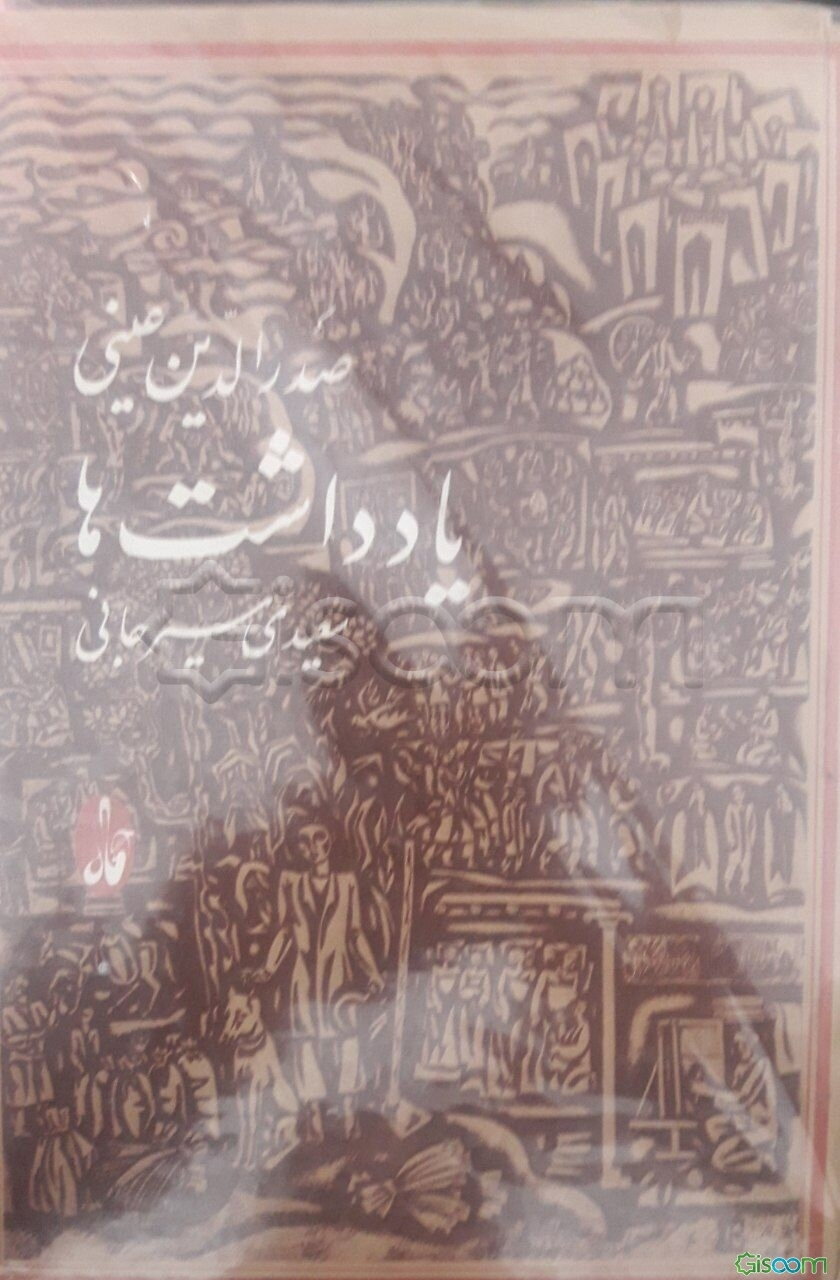 صدرالدّین عینی
یادداشت ها
سعیدی سیرجانی
آگاه
Gisoom
Gisoom